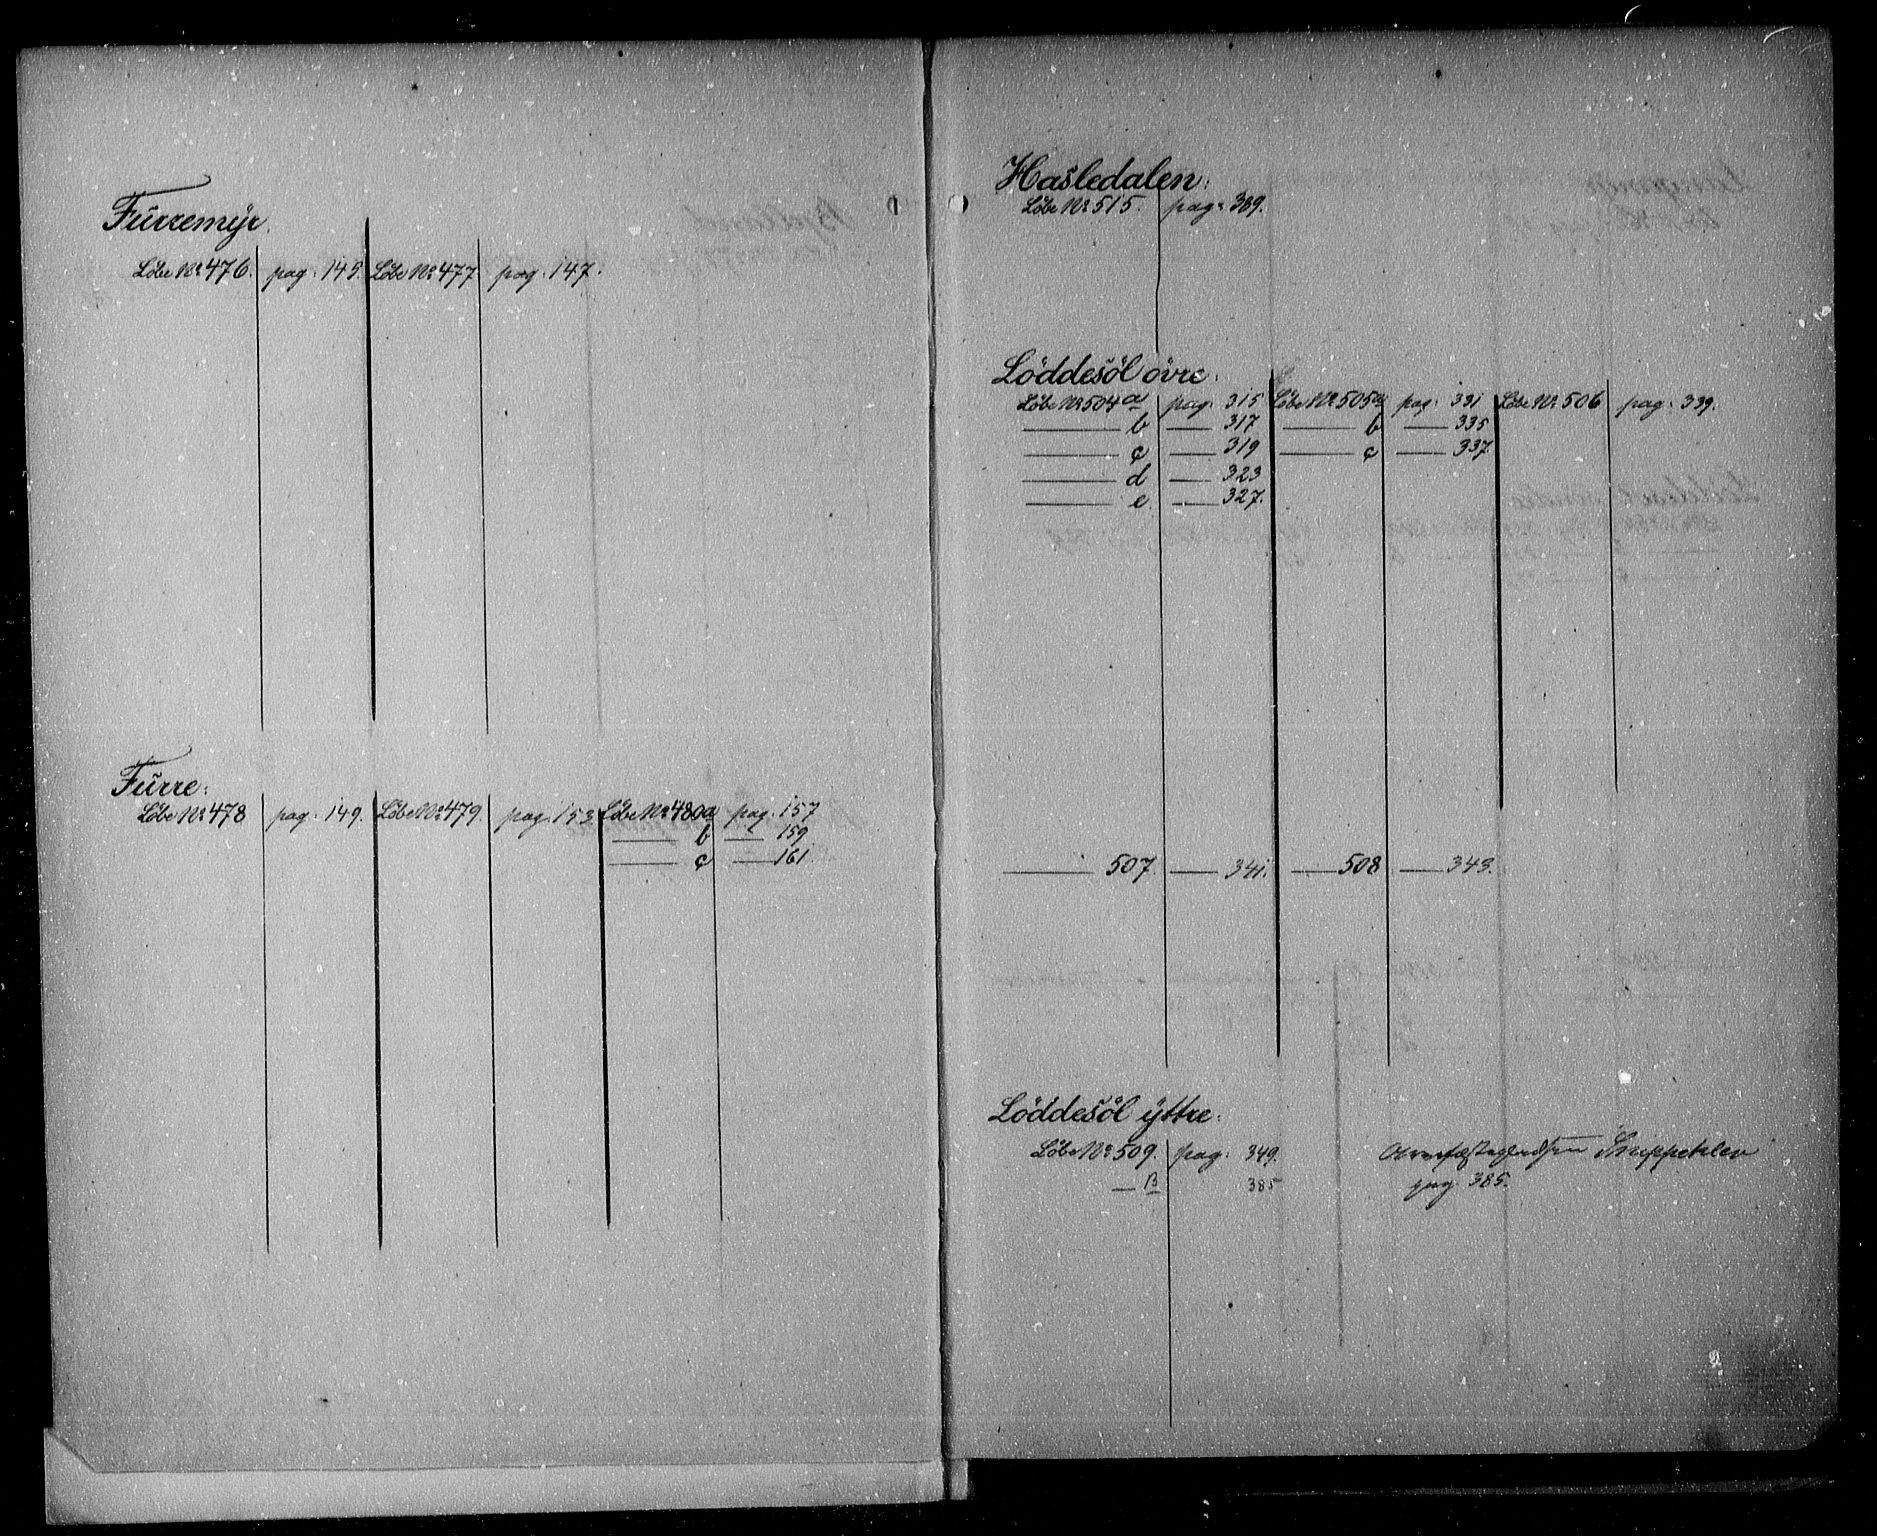 Furremyr.
Löbe No 476. pag. 145. Löbe No 477 pag. 147.
Furre:
Löbe No 478 pag. 149. Löbe No 479. pag. 153. Löbe No 480 a pag. 157
— b — 159
— c — 161.
Hasledalen:
Löbe No 515. pag: 389.
Löddesöl övre:
Löbe No 504 a pag. 315 Löbe No 505 a pag: 331 Löbe No 506 pag: 339.
— b — 317 — b — 335
— c — 319 — c — 337
— d — 323
— e — 327.
— 507. — 341. — 508 — 343.
Löddesöl yttre:
Löbe No 509. pag: 349.
— B 385
pag. 385.